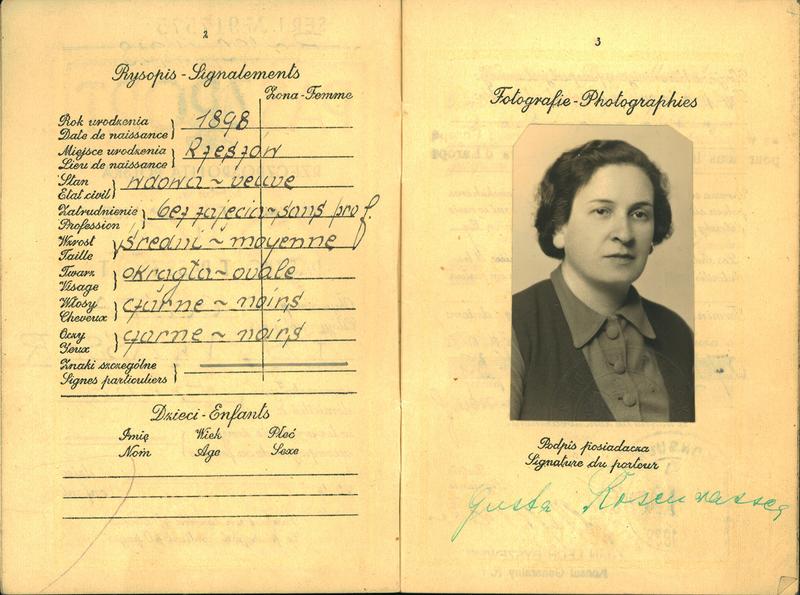 2
Rysopis - Signalements
Żona - Femme
Rok urodzenia
Date de naissance
1898
Miejsce urodzenia
Lieu de naissance
Rzeszów
Stan
Etat civil
wdowa ~ veuve
Zatrudnienie
Profession
bez zajęcia ~ sans prof.
Wzrost
Taille
średni ~ moyenne
Twarz
Visage
okrągła ~ ovale
Włosy
Cheveux
czarne ~ noirs
Oczy
Yeux
czarne ~ noirs
Znaki szczególne
Signes particuliers
Dzieci - Enfants
Imię Wiek Płeć
Nom Age Sexe
3
Fotografie - Photographies
Podpis posiadacza
Signature du porteur
Gusta Rosenwasser